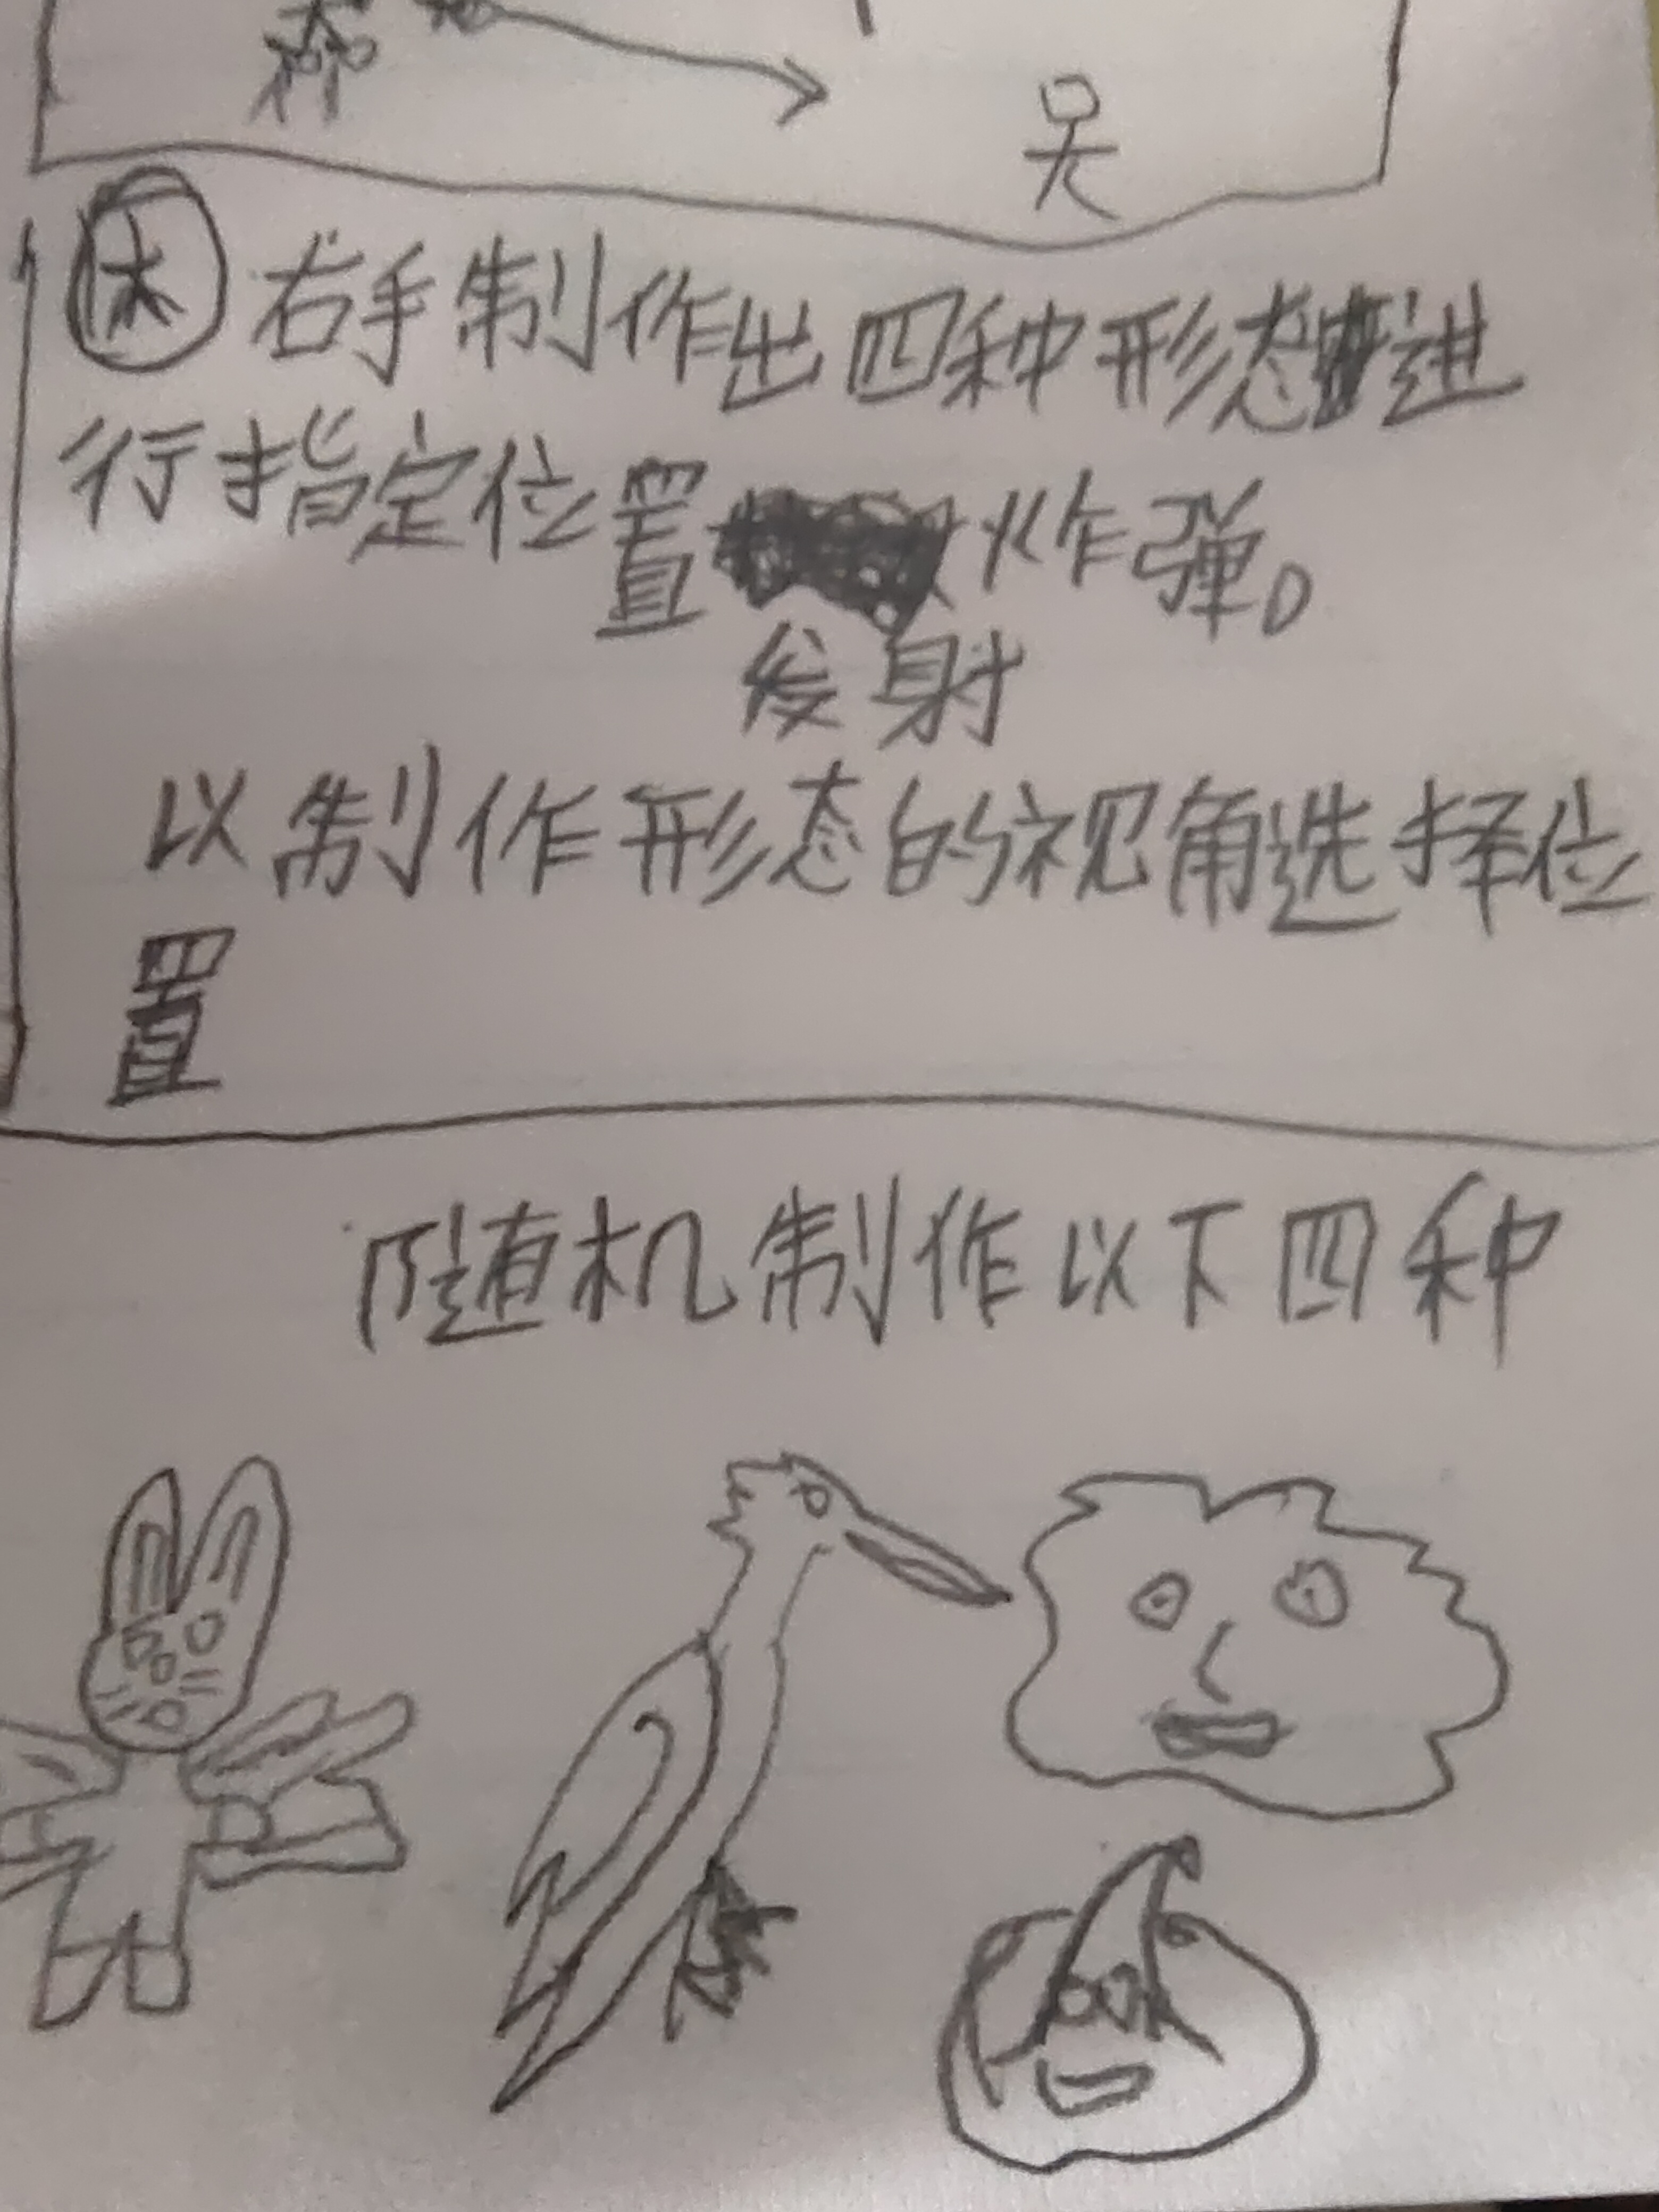 木 右手制作出四种形态进
行指定位置炸弹。
发射
以制作形态的视角选择位
置
随机制作以下四种